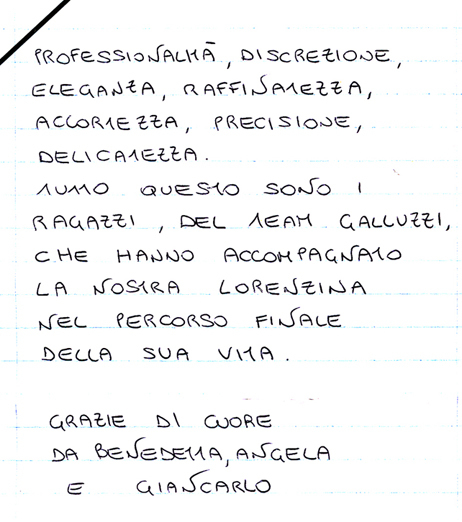 PROFESSIONALITÀ, DISCREZIONE,
ELEGANZA, RAFFINATEZZA,
ACCORTEZZA, PRECISIONE,
DELICATEZZA.
TUTTO QUESTO SONO I
RAGAZZI, DEL TEAM GALLUZZI,
CHE HANNO ACCOMPAGNATO
LA NOSTRA LORENZINA
NEL PERCORSO FINALE
DELLA SUA VITA.
GRAZIE DI CUORE
DA BENEDETTA, ANGELA
E GIANCARLO